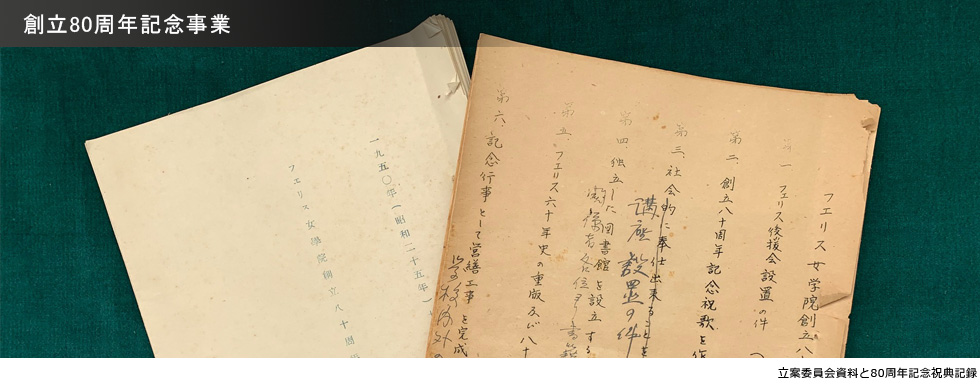 創立80周年記念事業
フェリス女学院創立八
第一 フェリス後援会設置の件
第二、創立八十周年記念祝歌を作
第三、社会的に奉仕出来ることを
講座設置の件
第四、独立した図書館を設立する
第五、フェリス六十年史の重版及び八十
第六、記念行事として営繕工事を完成
一九五〇年（昭和二十五年）
フェリス女學院創立八十周
立案委員会資料と80周年記念祝典記録